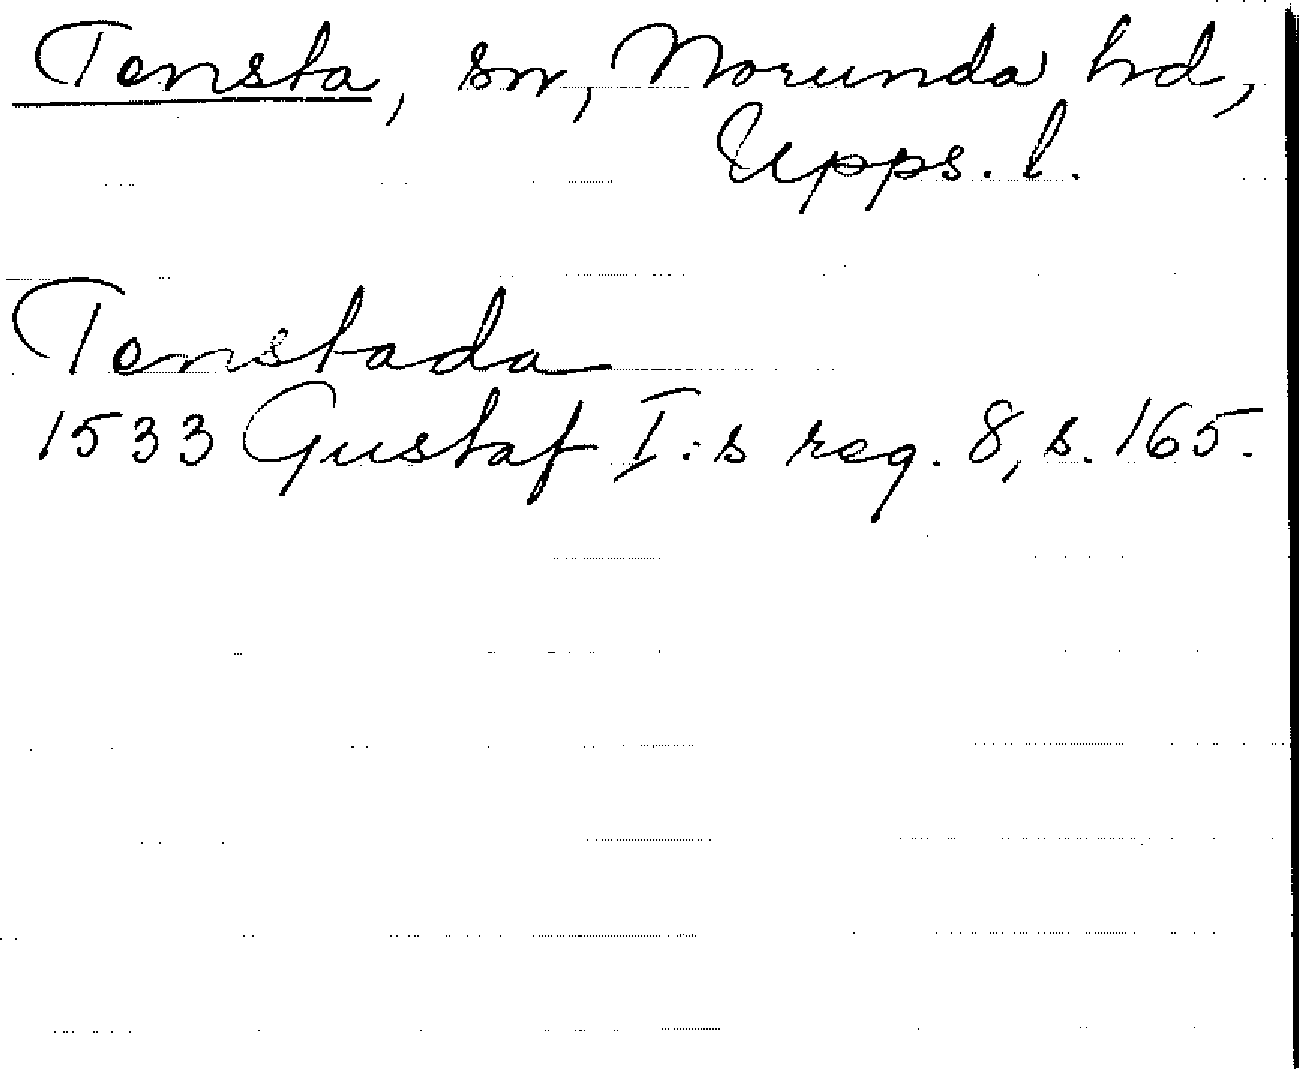 Tensta, sn, Norunda hd,
Upps. l.
Tenstada
1533 Gustaf I:s reg. 8, s. 165.